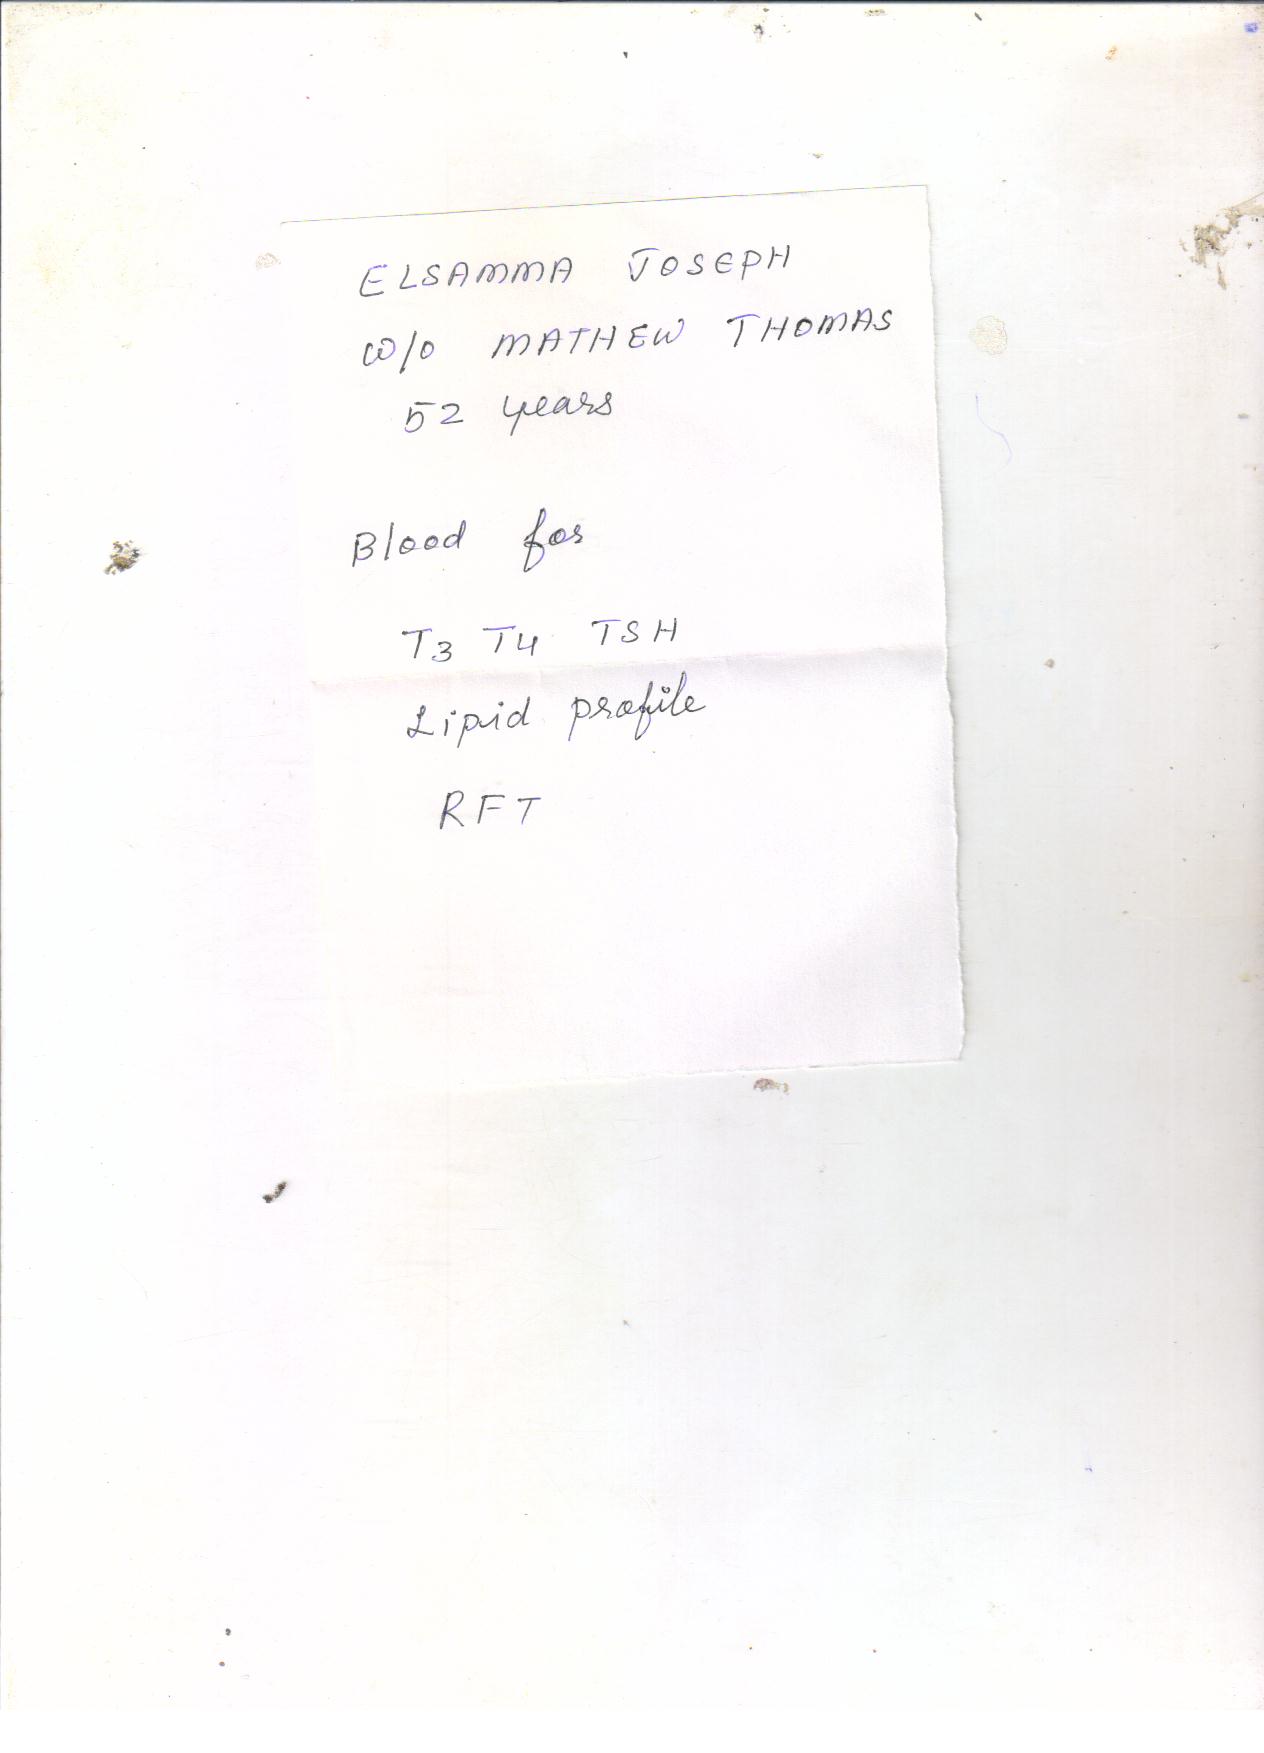 ELSAMMA JOSEPH
W/O MATHEW THOMAS
52 years
Blood for
T3 T4 TSH
Lipid profile
RFT